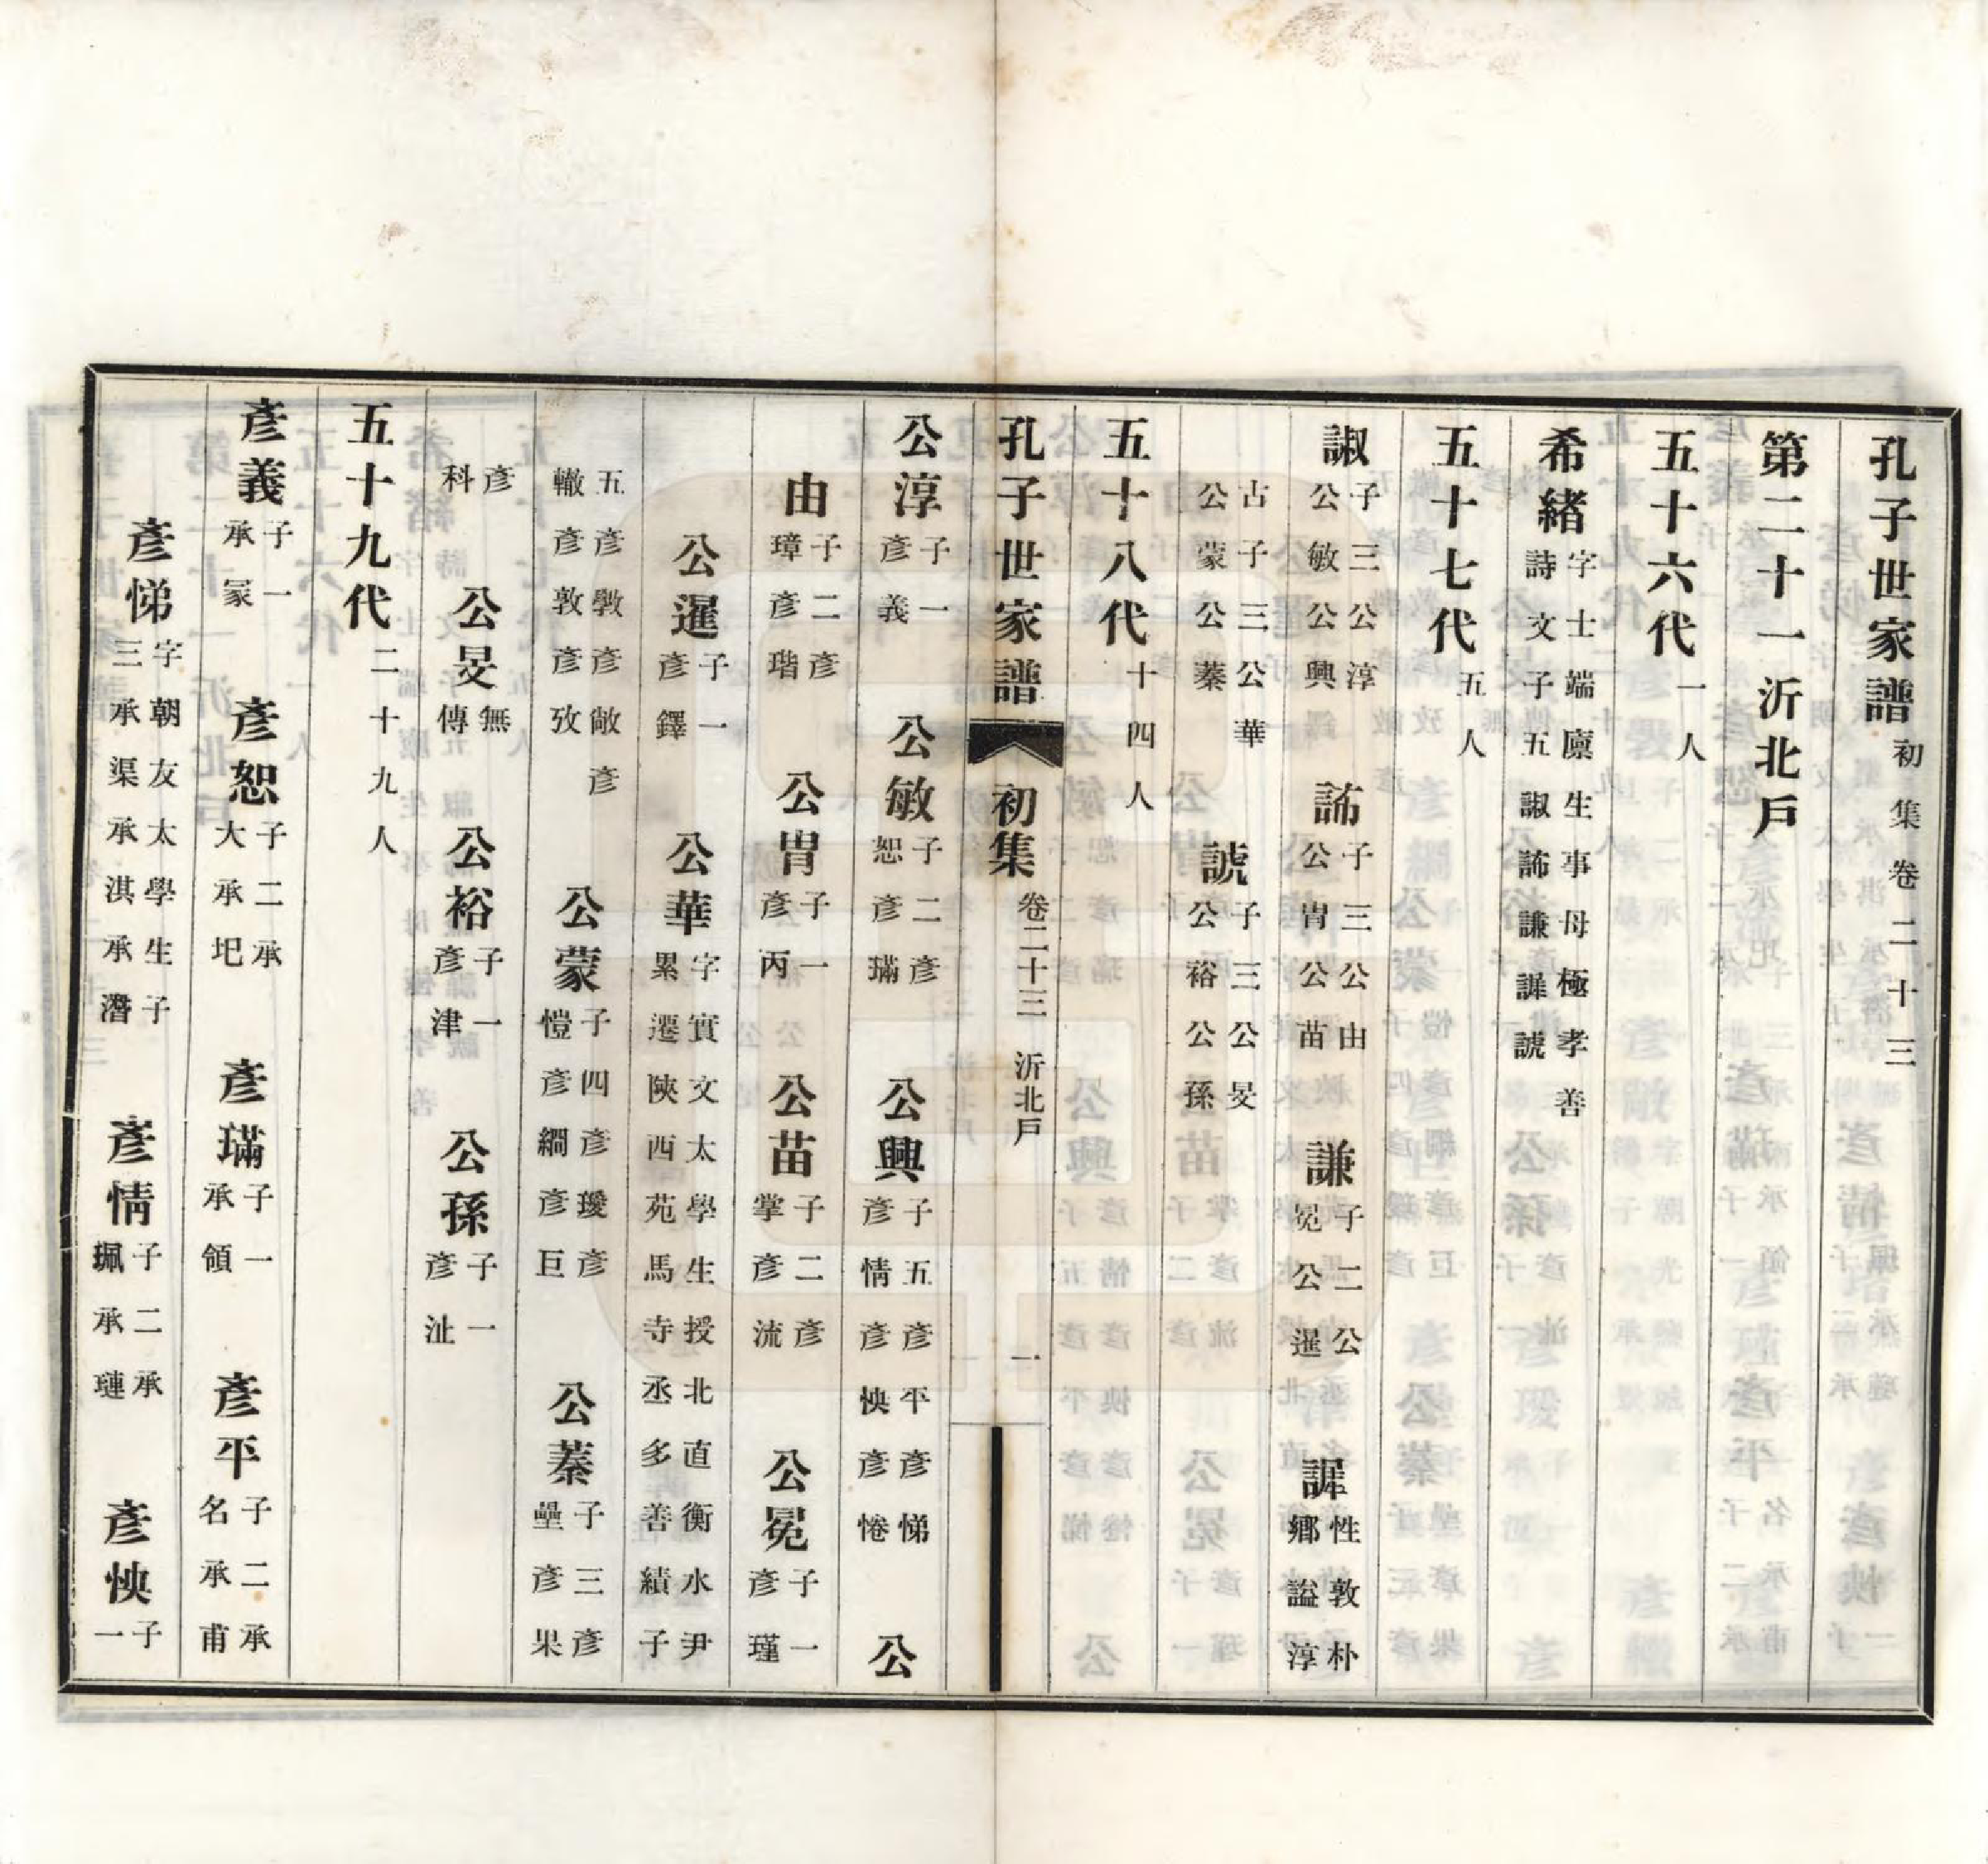 孔子世家譜初集卷二十三
第二十一沂北戶
五十六代一人
希緒字士端廩生事母極孝善詩文子五諔䛔謙諽諕
五十七代五人
諔子三公淳公敏公興　䛔子三公由公冑公苗　謙子二公冕公暹　諽性敦朴鄉謚淳
古子三公華公蒙公蓁　諕子三公旻公裕公孫
五十八代十四人
孔子世家譜　初集　卷二十三　沂北戶　一
公淳子一彥義　公敏子二彥恕彥璊　公興子五彥平彥悌彥情彥怏彥惓　公
由子二彥璋彥瑎　公冑子一彥丙　公苗子二彥掌彥流　公冕子一彥瑾
公暹子一彥鐸　公華字實文太學生授北直衡水尹累遷陝西苑馬寺丞多善績子
五彥斅彥敞彥轍彥敦彥攷　公蒙子四彥璦彥愷彥綢彥巨　公蓁子三彥壘彥果
彥科　公旻無傳　公裕子一彥津　公孫子一彥沚
五十九代二十九人
彥義子一承冡　彥恕子二承大承圯　彥璊子一承領　彥平子二承名承甫
彥悌字朝友太學生子三承渠承淇承濳　彥情子二承珮承璉　彥怏子一